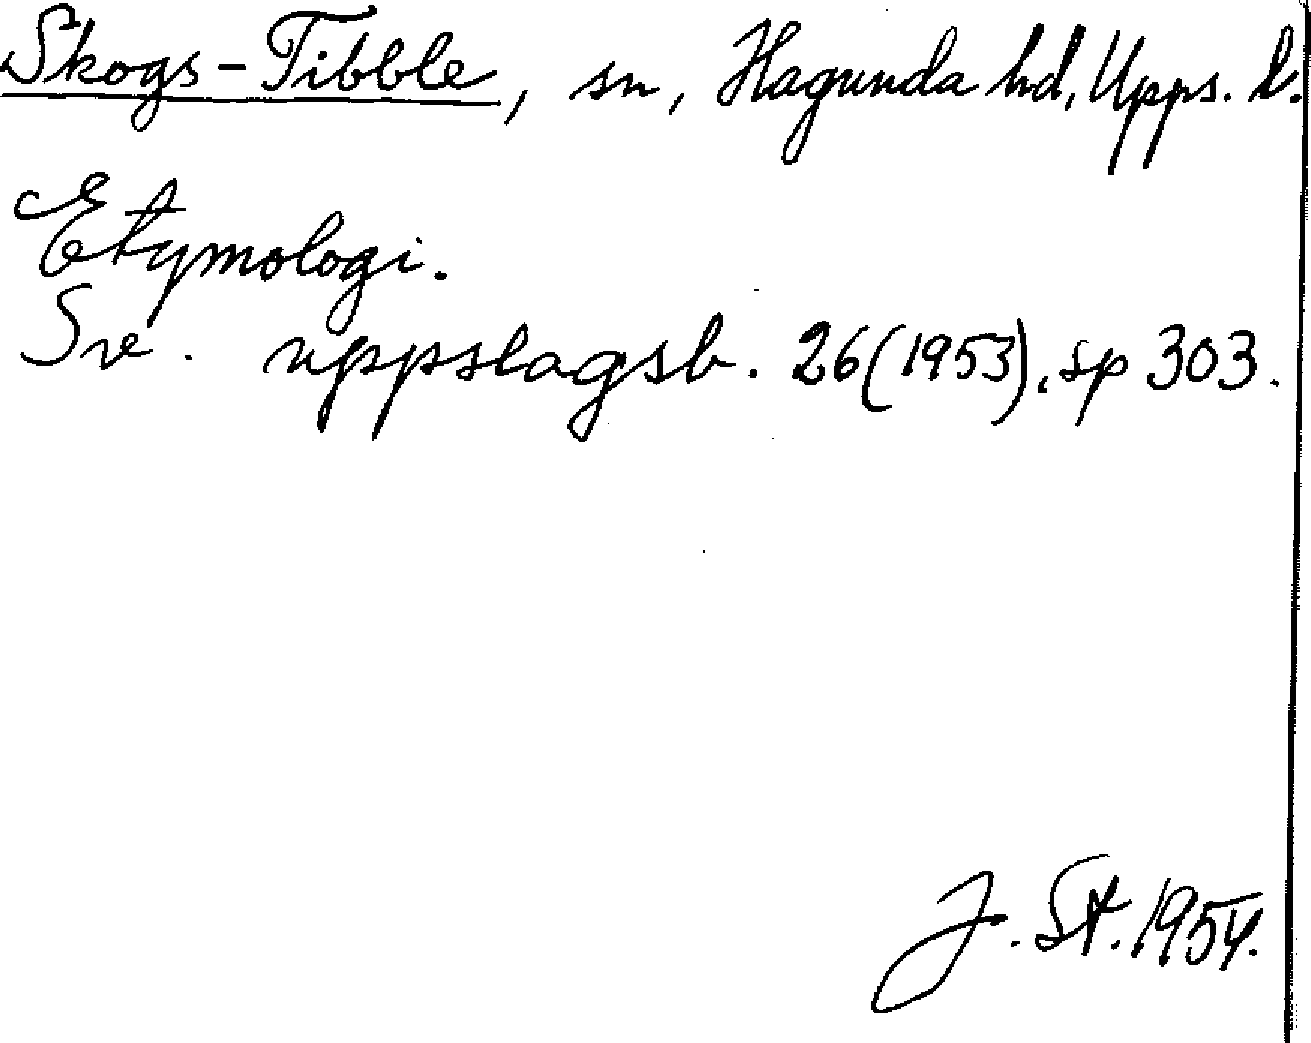 Skogs-Tibble, sn, Hagunda hd, Upps. l.
Etymologi.
Sv. uppslagsb. 26(1953), sp 303.
J. St. 1954.